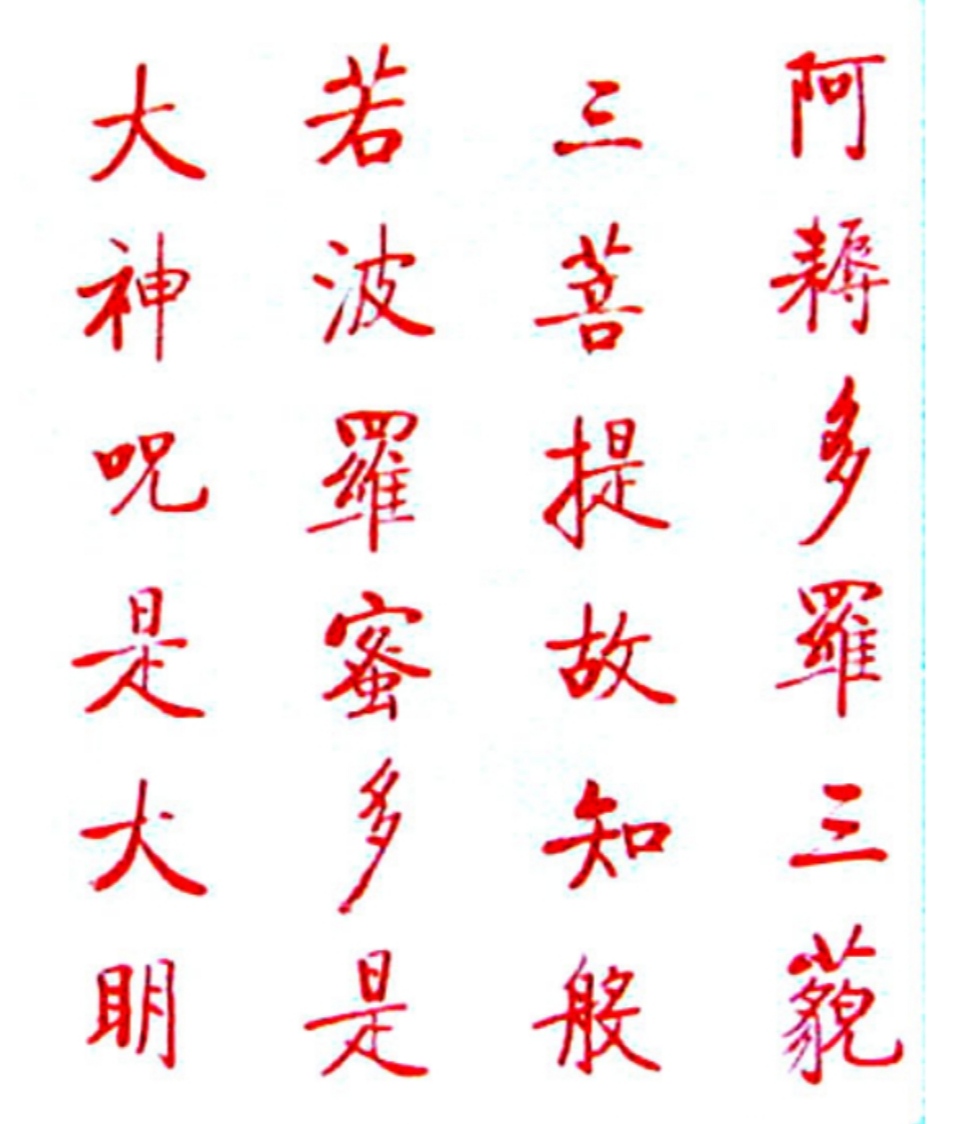 阿耨多羅三藐
三菩提故知般
若波羅蜜多是
大神呪是大明